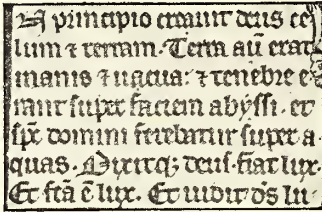 A principio creauit deus ce
lum ⁊ terram. Terra aū erat
inanis ⁊ uacua: ⁊ tenebre e
rant super faciem abyssi. et
sp̄s domini ferebatur super a-
quas. Dixitq; deus. fiat lux.
Et fc̄a ē lux. Et uidit ds̄ lu-